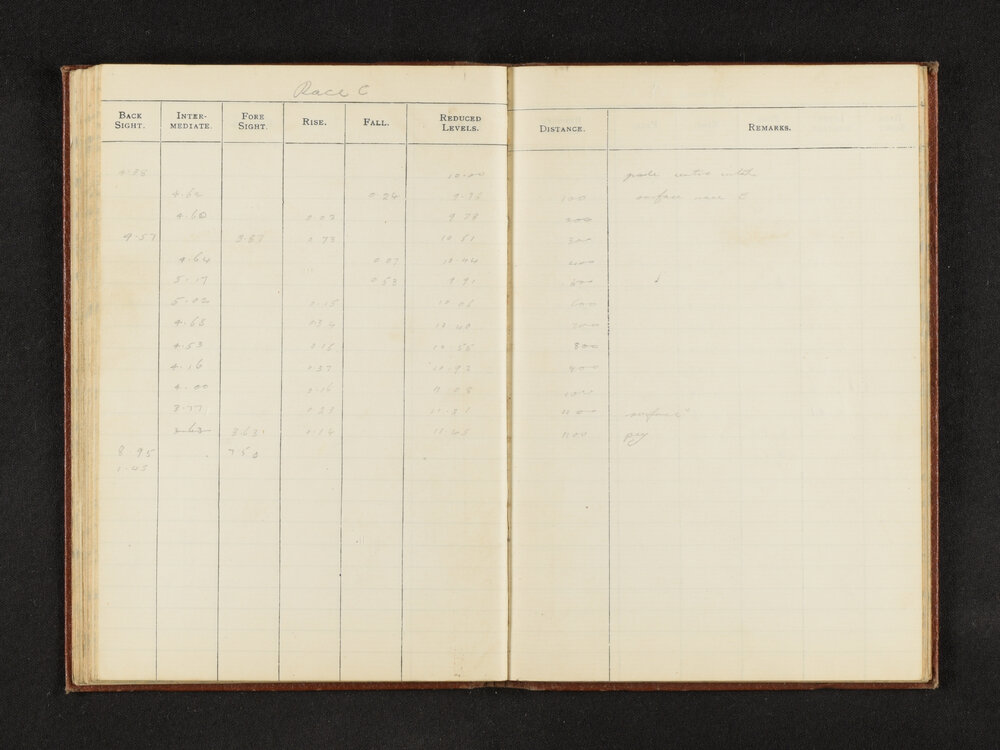 Race C
BACK SIGHT. INTER-MEDIATE. FORE SIGHT. RISE. FALL. REDUCED LEVELS. DISTANCE. REMARKS.
4.38 10.00
4.62 0.24 9.76 100 surface race C
4.60 0.02 9.78 200
9.57 3.87 0.73 10.51 300
4.64 0.07 10.44 400
5.17 0.53 9.91 500
5.02 0.15 10.06 600
4.68 0.34 10.40 700
4.53 0.15 10.55 800
4.16 0.37 10.92 900
4.00 0.16 11.08 1000
3.77 0.23 11.31 1100 surface
3.63 3.63 0.14 11.45 1200 peg
8.95 7.50
1.45